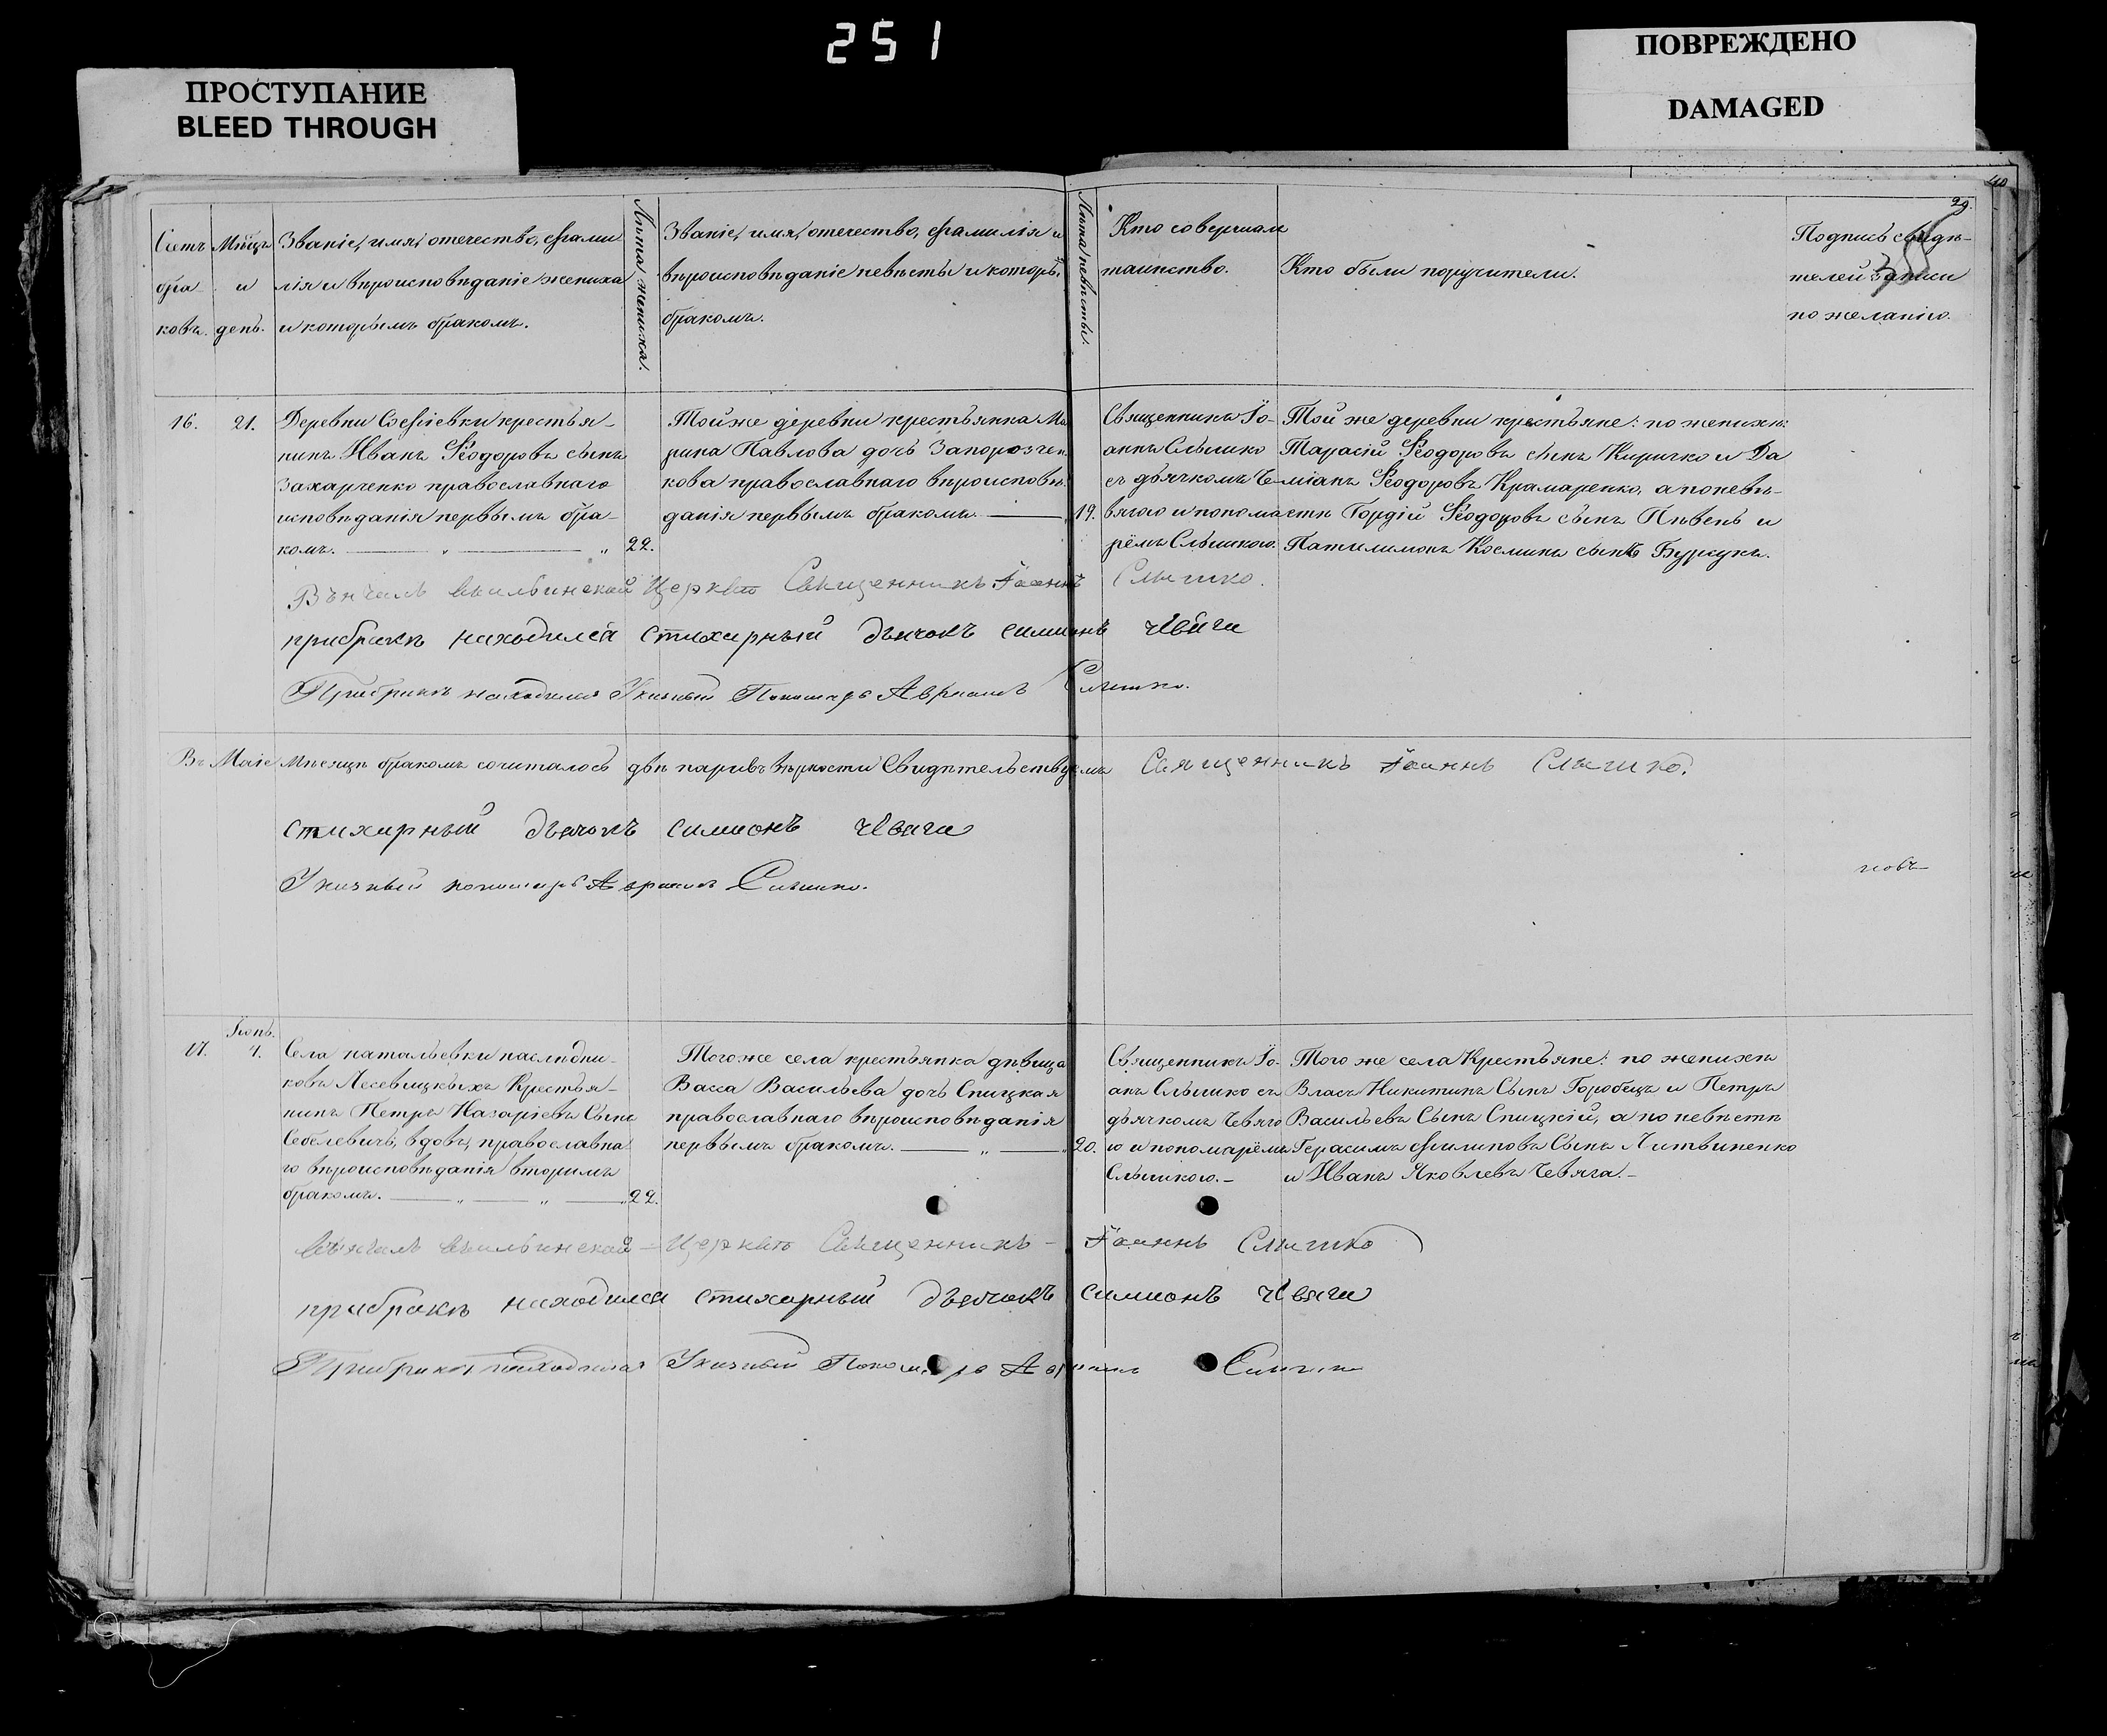 251
ПРОСТУПАНИЕ
BLEED THROUGH
ПОВРЕЖДЕНО
DAMAGED
29.
Счетъ
бра-
ковъ.
Мѣцъ
и
день.
Званіе, имя, отечество, фами
лія и вѣроисповѣданіе жениха
и которымъ бракомъ.
Лѣта жениха.
Званіе, имя, отечество, фамилія и
вѣроисповѣданіе невѣсты и которы.
бракомъ.
Лѣта невѣсты.
Кто совершал
таинство.
Кто были поручители.
Подпись свидѣ-
телей записи
по желанію.
16.
21.
Деревни Софіевки крестья-
нинъ Иванъ Ѳеодоровъ сынъ
Захарченко православнаго
исповѣданія первымъ бра-
комъ.
22.
Той же деревни крестьянка Ма
рина Павлова дочь Запорозчен
кова православнаго вѣроисповѣ
данія первымъ бракомъ.
19.
Священникъ Іо-
аннъ Слышко
съ дьячкомъ Че-
вягою и понома
рёмъ Слышкою.
Той же деревни крестьяне: по женихѣ:
Тарасій Ѳеодоровъ сынъ Киричко и Да
міанъ Ѳеодоровъ Крамаренко, а по невѣ-
стѣ Гордій Ѳеодоровъ сынъ Пѣвень и
Пантилимонъ Косминъ сынъ Бурсукъ.
Вѣнчалъ Васильинской Церкви Священникъ Іоаннъ Слышко.
при бракѣ находился стихарный дьячокъ Симионъ Чевяга
При бракѣ находился Указный Пономарь Авраамъ Слышко.
Въ Маіе Мѣсяцѣ бракомъ сочиталось двѣ пари въ вѣрности Свидѣтельствуемъ Священникъ Іоаннъ Слышко.
стихарный дьячокъ Симионъ Чевяга
Указный пономарь Авраамъ Слышко.
новъ
17.
Іюнь.
4.
Села натальевки наслидни-
ковъ Лесевицкыхъ Крестья-
нинъ Петръ Назаріевъ Сынъ
Себелевичъ, вдовъ, православна
го вѣроисповѣданія вторимъ
бракомъ.
22.
Того же села крестьянка дѣвица
Васса Васильева дочь Спицкая
православнаго вѣроисповѣданія
первымъ бракомъ.
20.
Священникъ Іо-
анъ Слышко съ
дьячкомъ Чевяго
ю и пономарёмъ
Слышкою.-
Того же села Крестьяне: по женихѣ
Власъ Никитинъ Сынъ Горобецъ и Петръ
Васильевъ Сынъ Спицкій, а по невѣстѣ
Герасимъ Филиповъ Сынъ Литвиненко
и Иванъ Яковлевъ Чевяга.-
Вѣнчалъ Васильинской Церкви Священникъ Іоаннъ Слышко
при бракѣ находился стихарный дьячокъ Симионъ Чевяга
При бракѣ находился Указный Пономарь Авраамъ Слышко